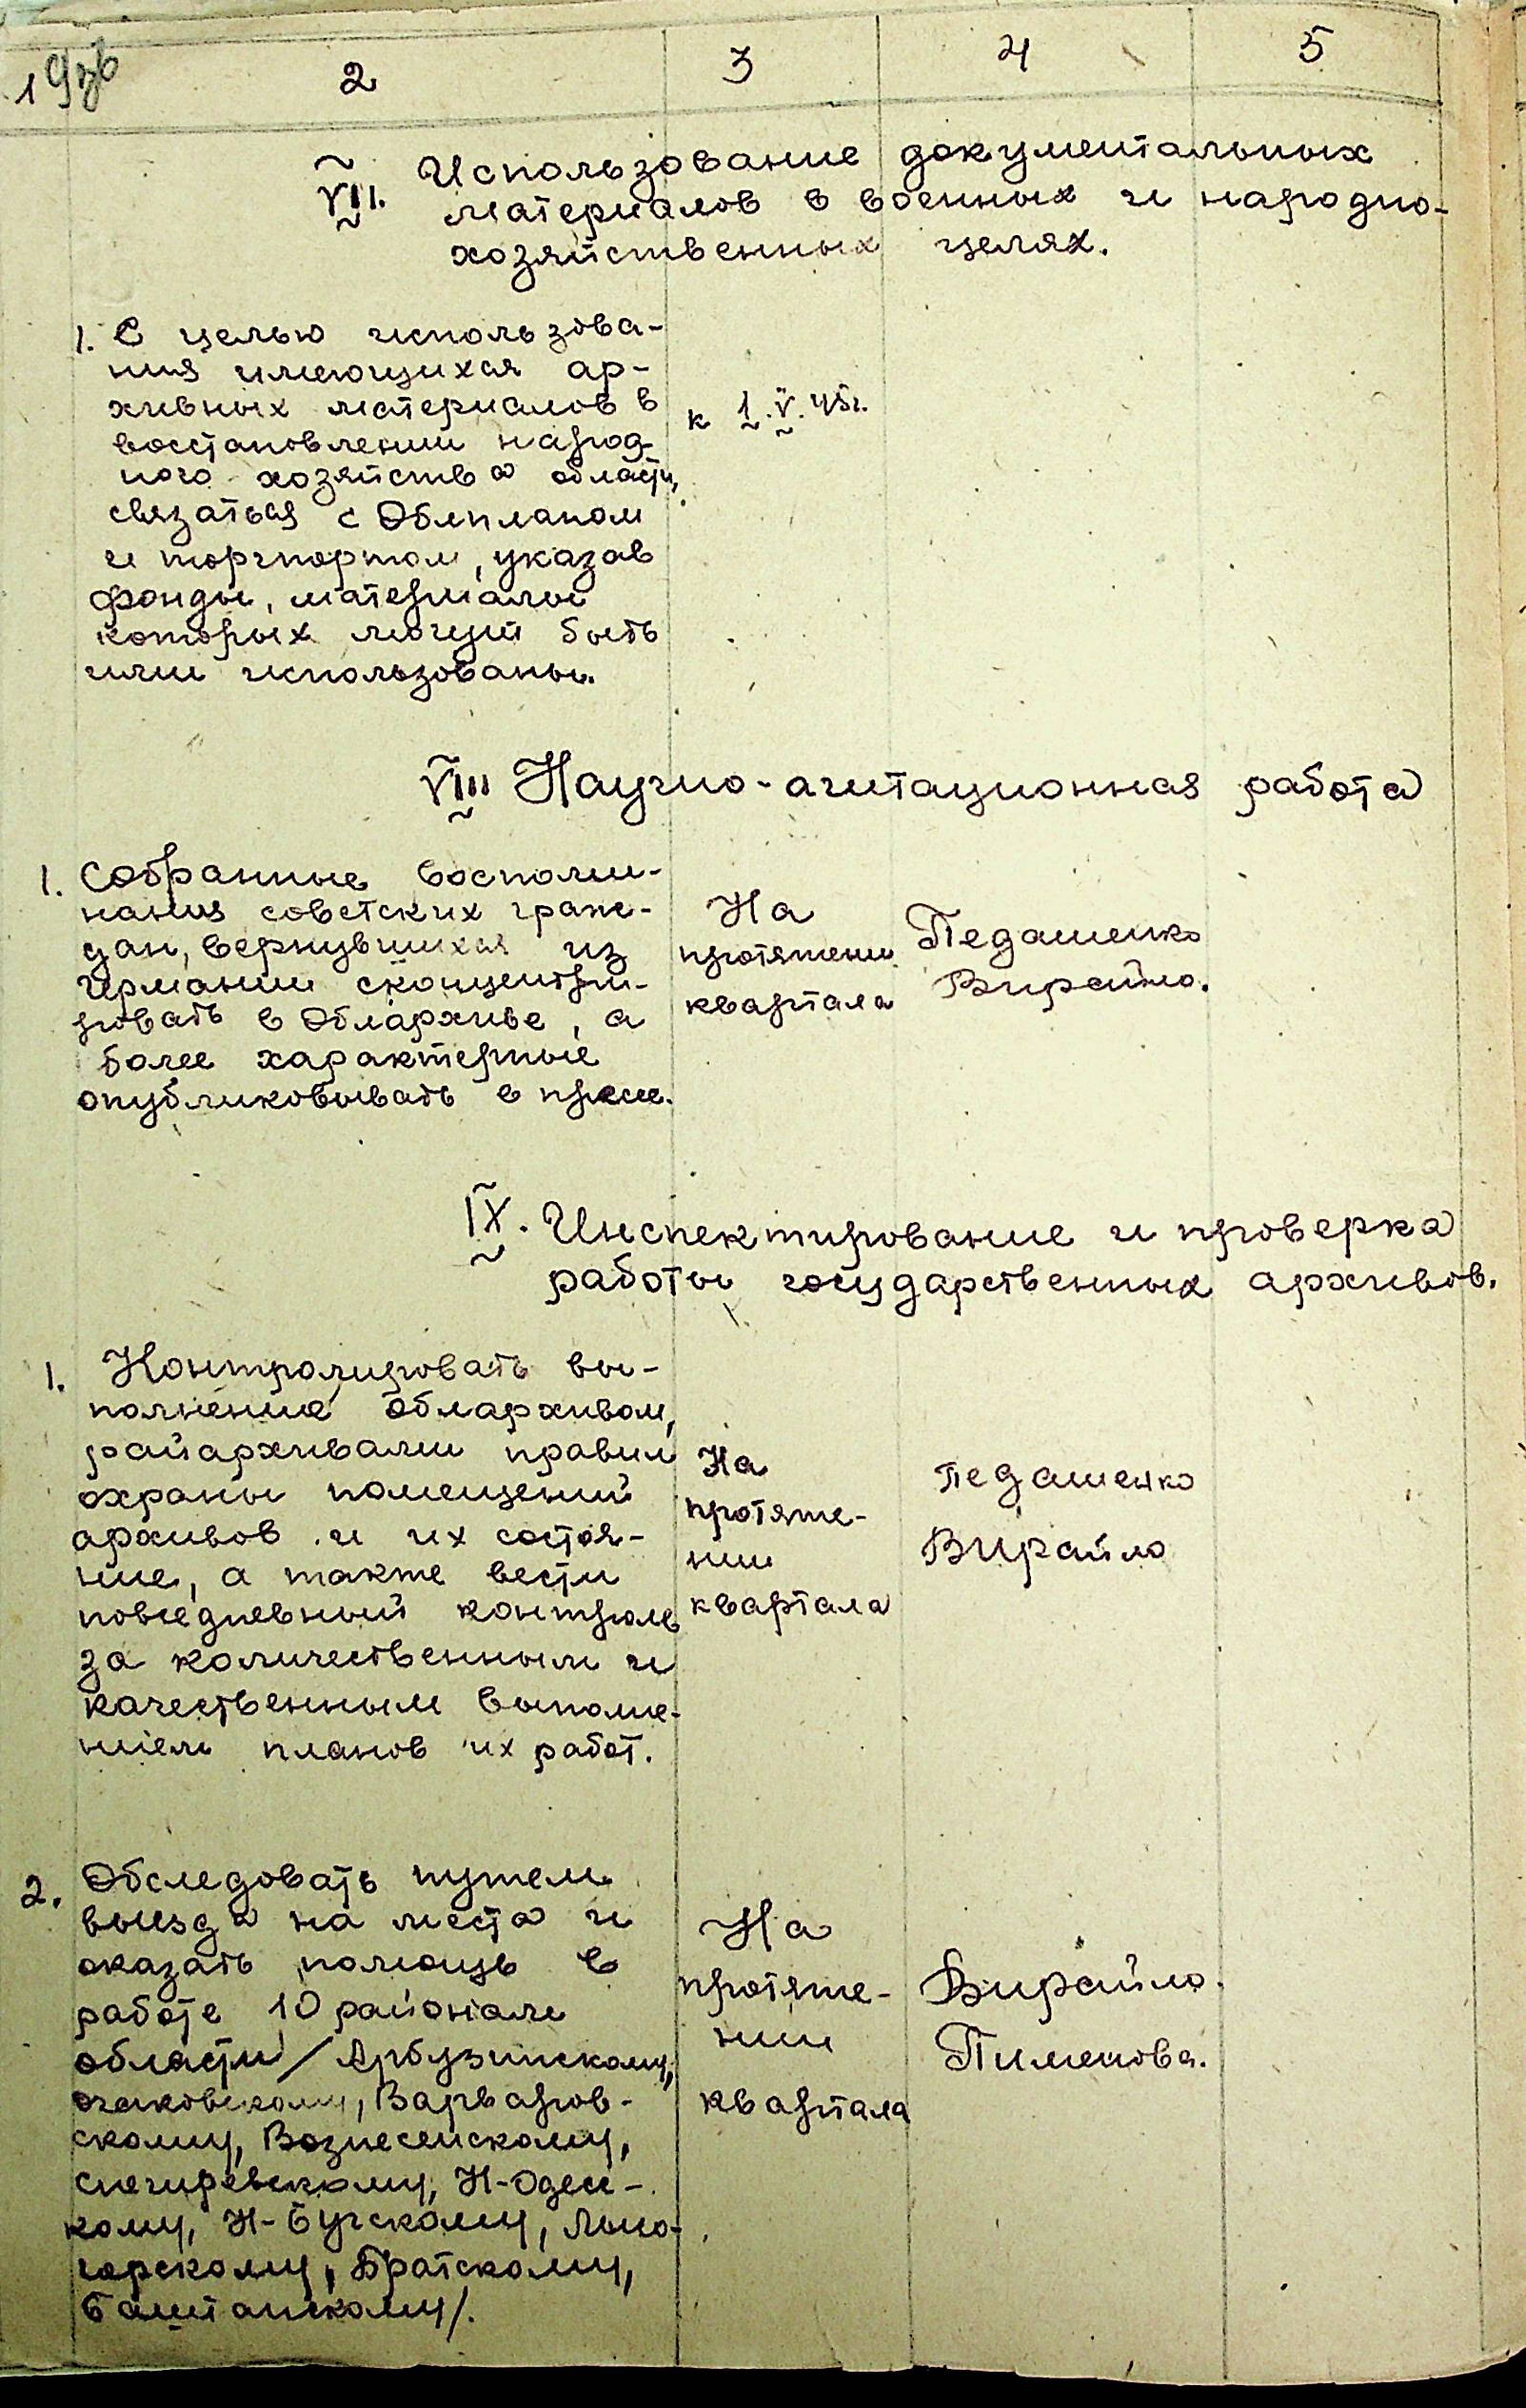 1 2 3 4 5
VII. Использование документальных
материалов в военных и народно-
хозяйственных целях.
1. С целью использова-
ния имеющихся ар-
хивных материалов в
восстановлении народ-
ного хозяйства области,
связаться с Облпланом
и торгпортом, указав
фонды, материалы
которых могут быть
ими использованы.
к 1.V.45г.
VIII Научно-агитационная работа
1. Собранные воспоми-
нания советских граж-
дан, вернувшихся из
Германии сконцентри-
ровать в Облархиве, а
более характерные
опубликовывать в прессе.
На
протяжении
квартала
Педашенко
Вирайло.
IX. Инспектирование и проверка
работы государственных архивов.
1. Контролировать вы-
полнение Облархивом,
райархивами правил
охраны помещений
архивов и их состоя-
ние, а также вести
повседневный контроль
за количественным и
качественным выполне-
нием планов их работ.
На
протяже-
нии
квартала
Педашенко
Вирайло
2. Обследовать путем
выезда на места и
оказать помощь в
работе 10 районам
области/Арбузинскому,
очаковскому, Варваров-
скому, Вознесенскому,
снегиревскому, Н-Одес-
кому, Н-Бугскому, Лысо-
горскому, Братскому,
Баштанскому/.
На
протяже-
нии
квартала
Вирайло.
Пименова.